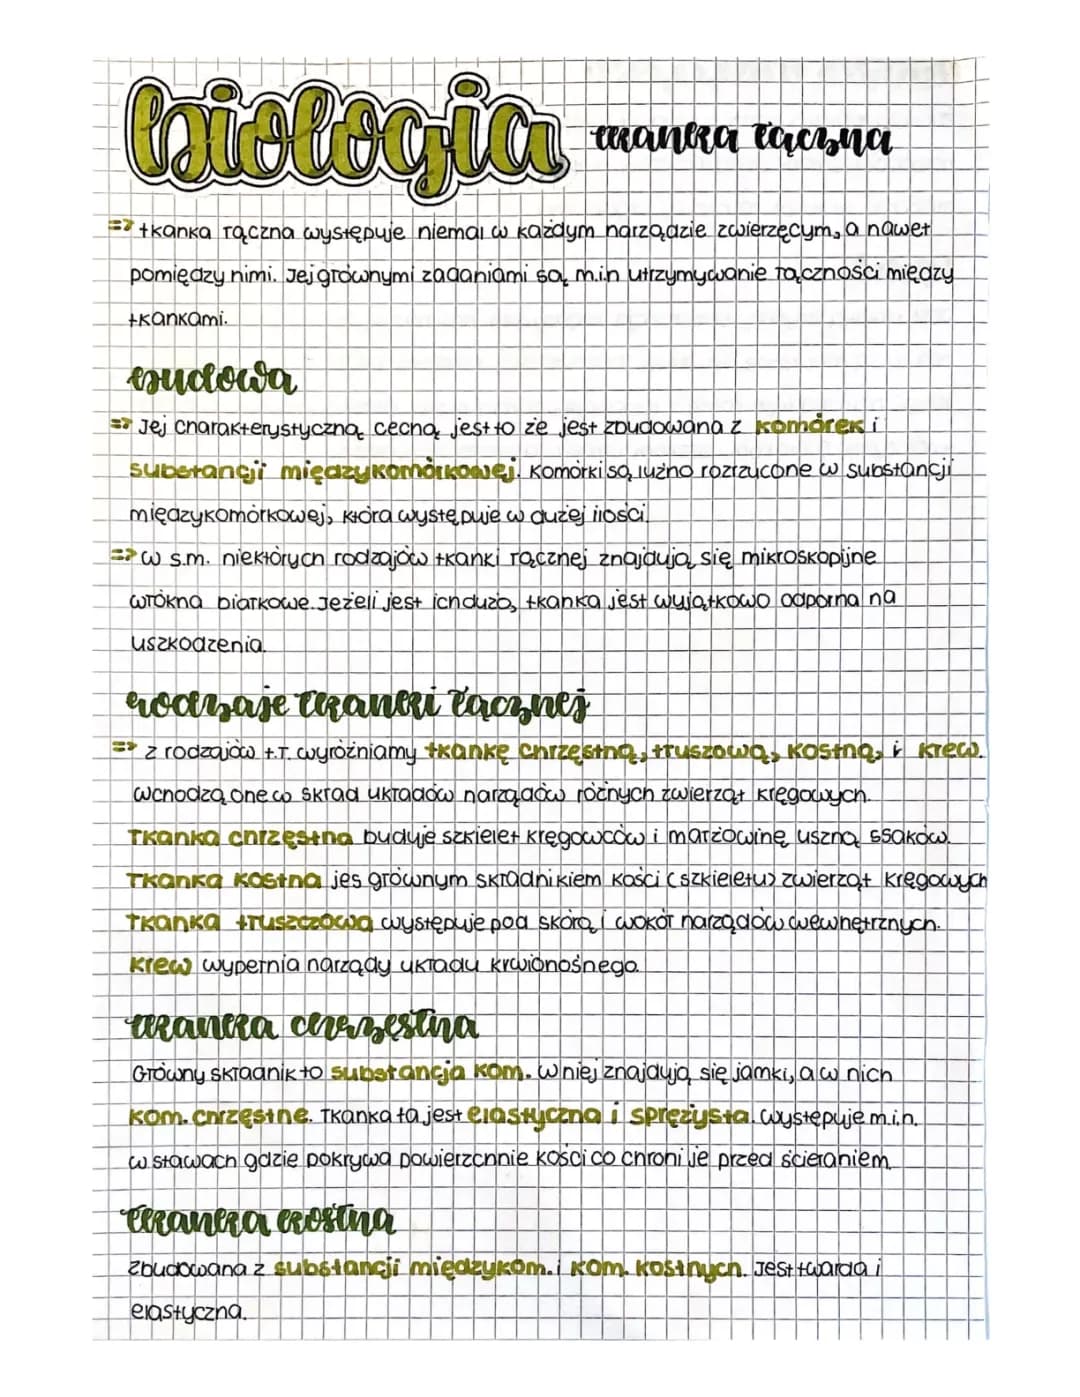 biologia tkanka łączna
=> tkanka łączna występuje niemal w każdym narządzie zwierzęcym, a nawet
pomiędzy nimi. Jej głównymi zadaniami są m.in utrzymywanie łączności między
tkankami.
budowa
=> Jej charakterystyczną cechą jest to że jest zbudowana z komórek i
substancji międzykomórkowej. Komórki są luźno rozrzucone w substancji
międzykomórkowej, która występuje w dużej ilości.
=> w s.m. niektórych rodzajów tkanki łącznej znajdują się mikroskopijne
włókna białkowe. Jeżeli jest ich dużo, tkanka jest wyjątkowo odporna na
uszkodzenia.
rodzaje tkanki łącznej
=> z rodzajów t.ł. wyróżniamy tkankę chrzęstną, tłuszową, kostną, i krew.
wchodzą one w skład układów narządów różnych zwierząt kręgowych.
Tkanka chrzęstna buduje szkielet kręgowców i małżowinę uszną ssaków.
Tkanka kostna jes głównym składnikiem kości (szkieletu) zwierząt kręgowych
Tkanka tłuszczowa występuje pod skórą i wokół narządów wewnętrznych.
Krew wypełnia narządy układu krwionośnego.
tkanka chrzęstna
Główny składnik to substancja kom. w niej znajdują się jamki, a w nich
kom. chrzęstne. Tkanka ta jest elastyczna i sprężysta. występuje m.i.n.
w stawach gdzie pokrywa powierzchnie kości co chroni je przed ścieraniem.
tkanka kostna
zbudowana z substancji międzykom. i kom. kostnych. Jest twarda i
elastyczna.